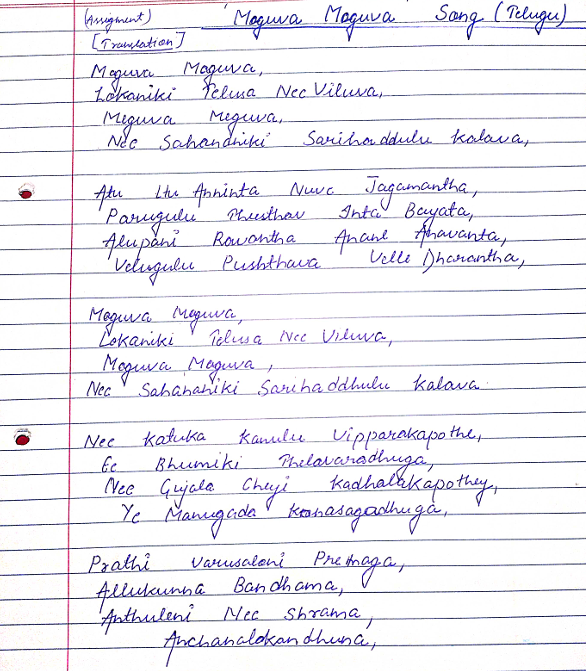 (Assigment)
Maguva Maguva Song (Telugu)
[Translation]
Maguva Maguva,
Lokaniki Telusa Nee Viluva,
Meguva Meguva,
Nee Sahananiki Sarihaddulu Kalava,
Atu Itu Anninta Nuve Jagamantha,
Parugulu Theesthav Inta Bayata,
Alupani Ravvantha Anane Anavanta,
Velugulu Pushthava Velle Dharantha,
Maguva Maguva,
Lokaniki Telusa Nee Viluva,
Maguva Maguva,
Nee Sahananiki Sarihaddhulu Kalava
Nee Katuka Kanulu Vipparakapothe,
Ee Bhumiki Thelavaradhuga,
Nee Gujala Cheyi Kadhalakapothey,
Ye Manugada Konasagadhuga,
Prathi Varusaloni Premaga,
Allukunna Bandhama,
Anthuleni Nee Shrama,
Anchanalakandhuna,